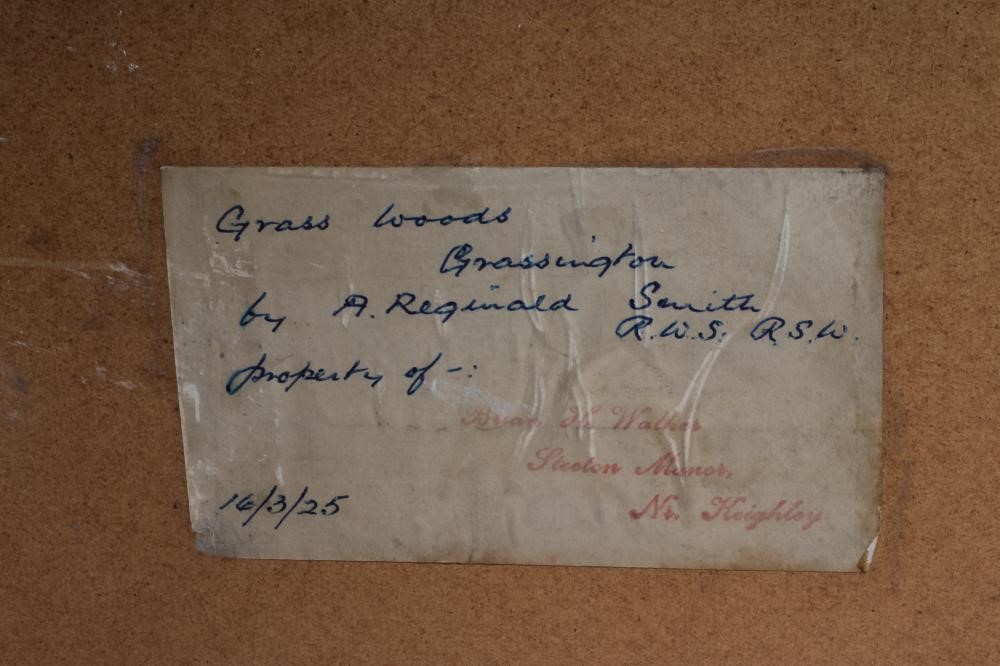 Grass Woods
Grassington
by A. Reginald Smith
R.W.S. R.S.W.
property of -:
Brian H. Walker
Steeton Manor,
Nr. Keighley
16/3/25